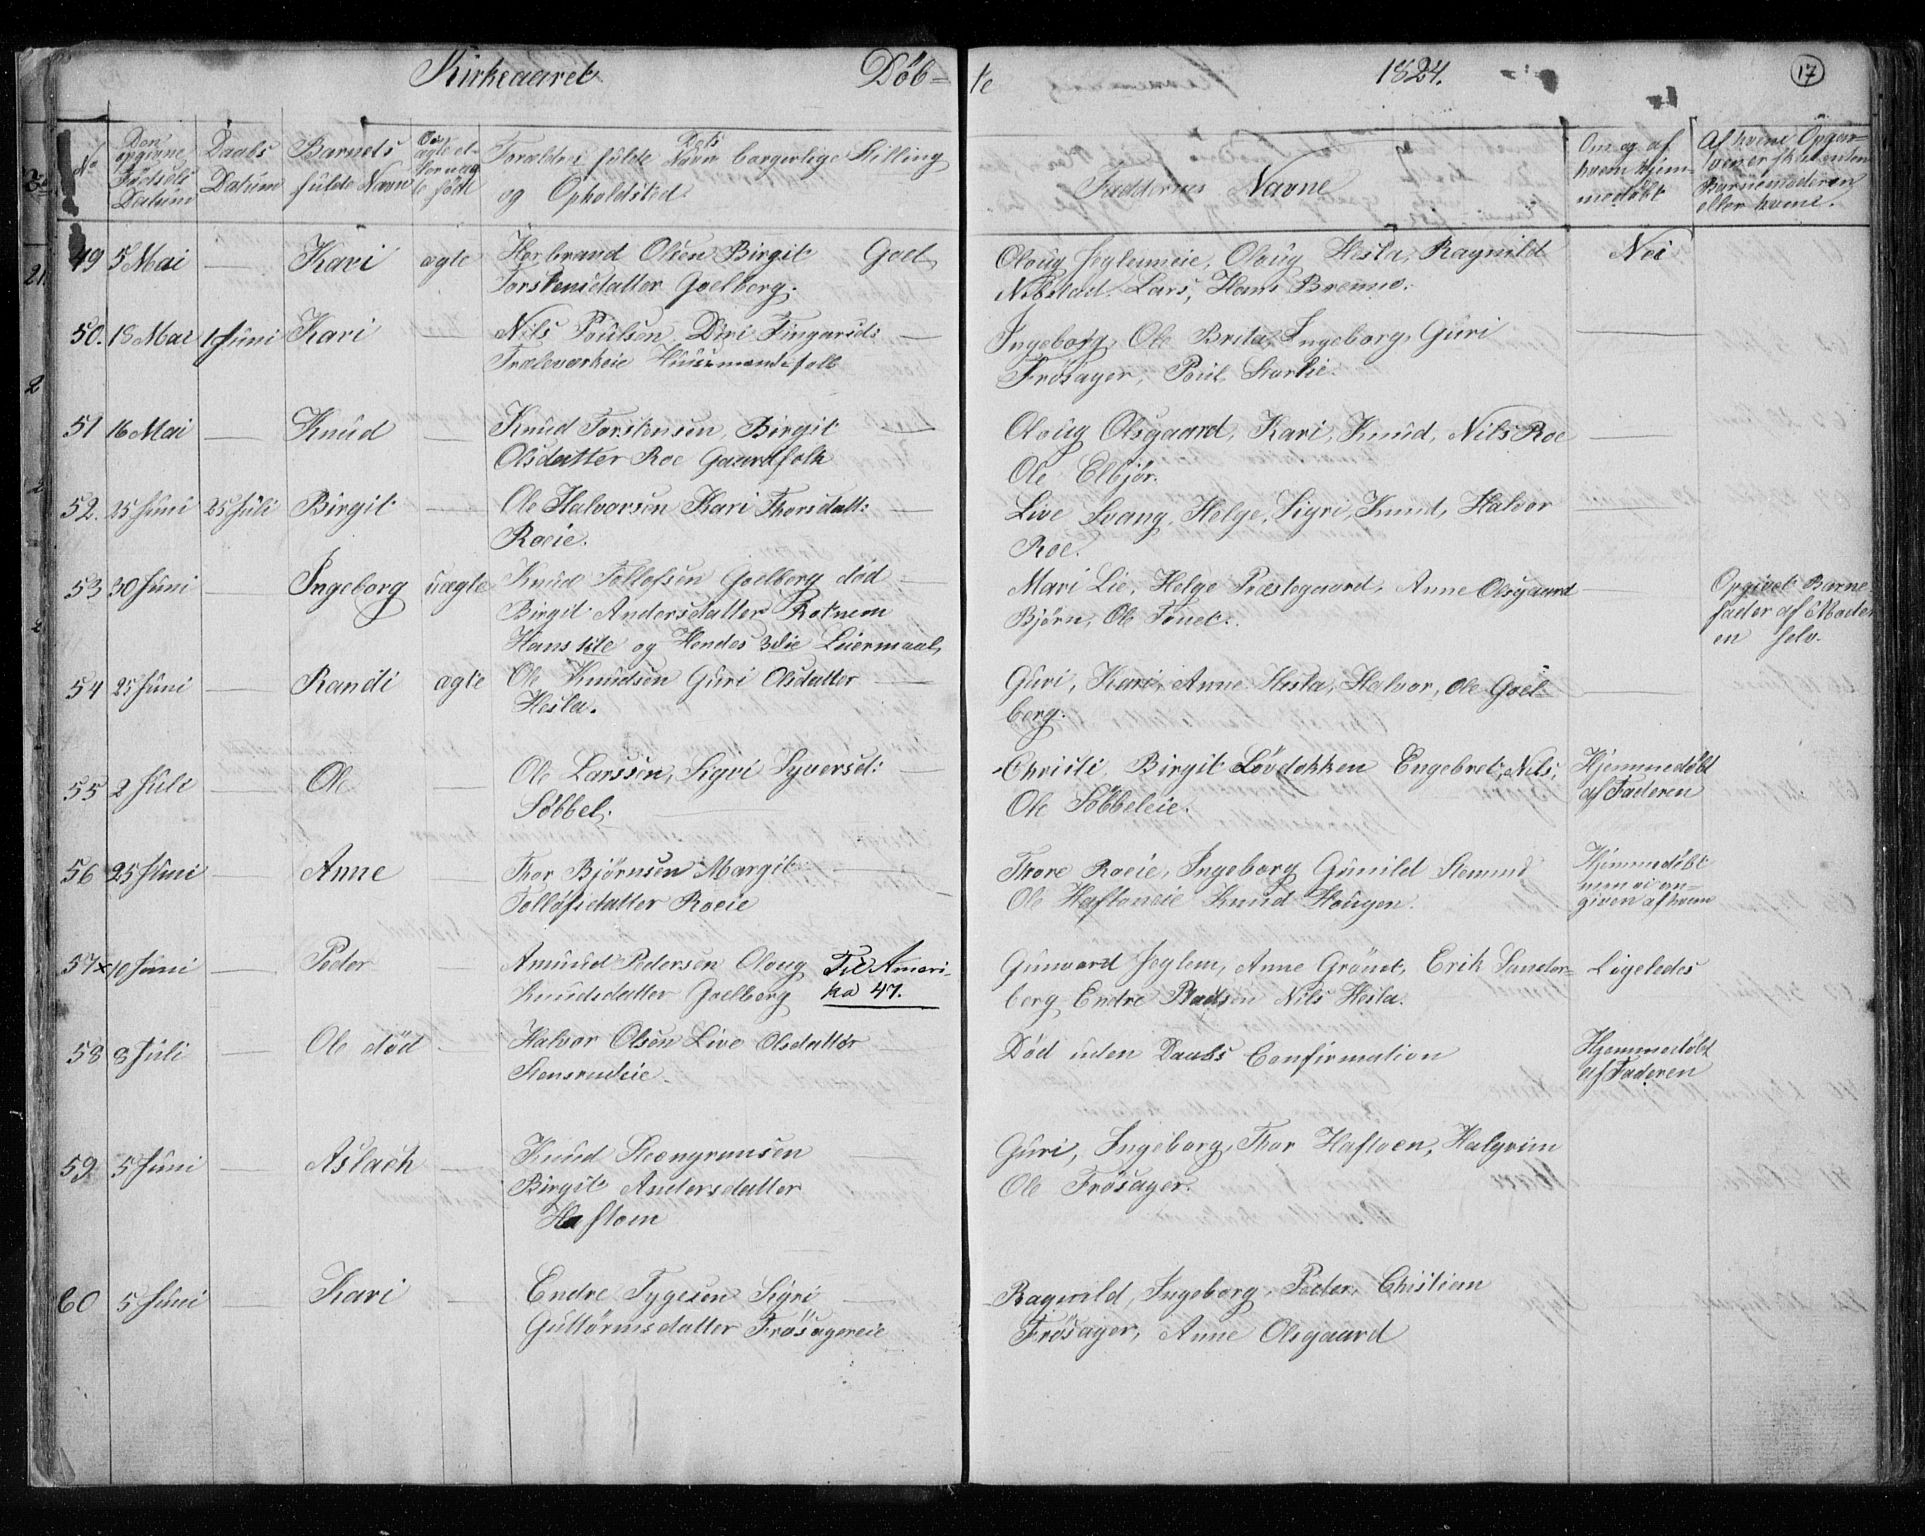 Kirkeaaret Døb=
te 1824. 17
No
Den opgivne Fødsels Datum
Daabs Datum
Barnets fulde Navn
Om ægte el- te fødte
Forældres fulde Navn borgerlige Stilling
og Opholdsted
Faddernes Navne
Om og af hvem hjem- medøbt
Barnemoderen eller hvem.
49 5 Mai — Kari ægte Herbrand Olsen Birgit Goel
Torstensdatter Goelberg.
Oloug Jeglemeie, Oloug Hesla, Ragnild Nei
Nibstad. Lars, Hans Brenno.
50. 18 Mai 1 Juni Kari — Nils Poulsen, Fingarsd: —
Huusmandsfolk
Ingeborg, Ole Brita, Ingeborg, Guri —
Frøsager, Poul Storlie.
51 16 Mai — Knud — Knud Torstensen, Birgit —
Olsdatter Roe Gaardfolk
Oloug Olsgaard, Kari, Knud, Nils Roe —
Ole Elbjør.
52. 25 Juni 25 Juli Birgit — Ole Halvorsen Kari Thorsdatt: —
Roeie.
Live Svang, Helge, Sigri, Knud, Halvor —
Roe.
53 30 Juni — Ingeborg uægte Knud Tollefsen Goelberg død —
Birgit Andersdatter Rotnem
Hans 1ste og Hendes 3die Leiermaal,
Mari Lie, Helge Præstegaard, Anne Olsgaard —
Bjørn, Ole Tonet.
Opgivet Barne
fader af Moder
en selv.
54 25 Juni — Randi ægte Ole Knudsen Guri Olsdatter —
Hesla.
Guri, Kari, Anne Hesla, Halvor, Ole Goel- —
berg.
55 2 Juli — Ole — Ole Larssen, Sigri Syversd: —
Søbbel.
Christi, Birgit Løvdokken Engebret, Nils,
Ole Søbbeleie.
Hjemmedøbt
af Faderen
56 25 Juni — Anne — Thor Bjørnsen Margit
Tollefsdatter Roeie —
Thore Roeie, Ingeborg Gunild
Ole Haftoneie Knud Hougen.
Hjemmedøbt
men ei an-
given af hvem
57x 10 Juni — Peder — Amund Pedersen Oloug Til Ameri-
Knudsdatter Goelberg ka 47.
Gunvord Jeglem, Anne Grönet, Erik Sander= Ligeledes
berg Endre Nils Hesla.
58 8 Juli — Ole død — Halvor Olsen Live Olsdatter
Stensrudeie.
Død uden Daabs Confirmation
Hjemmedøbt
af Faderen
59 5 Juni — Aslach — Knud Steengrunsen —
Birgit Andersdatter
Haftoen
Guri, Ingeborg, Thor Haftoen, Halgrim
Ole Frøsager.
60 5 Juni — Kari — Endre Tygesen Sigri —
Guttormsdatter Frøsagereie
Ragnild, Ingeborg, Peder, Chistian
Frøsager, Anne Olsgaard